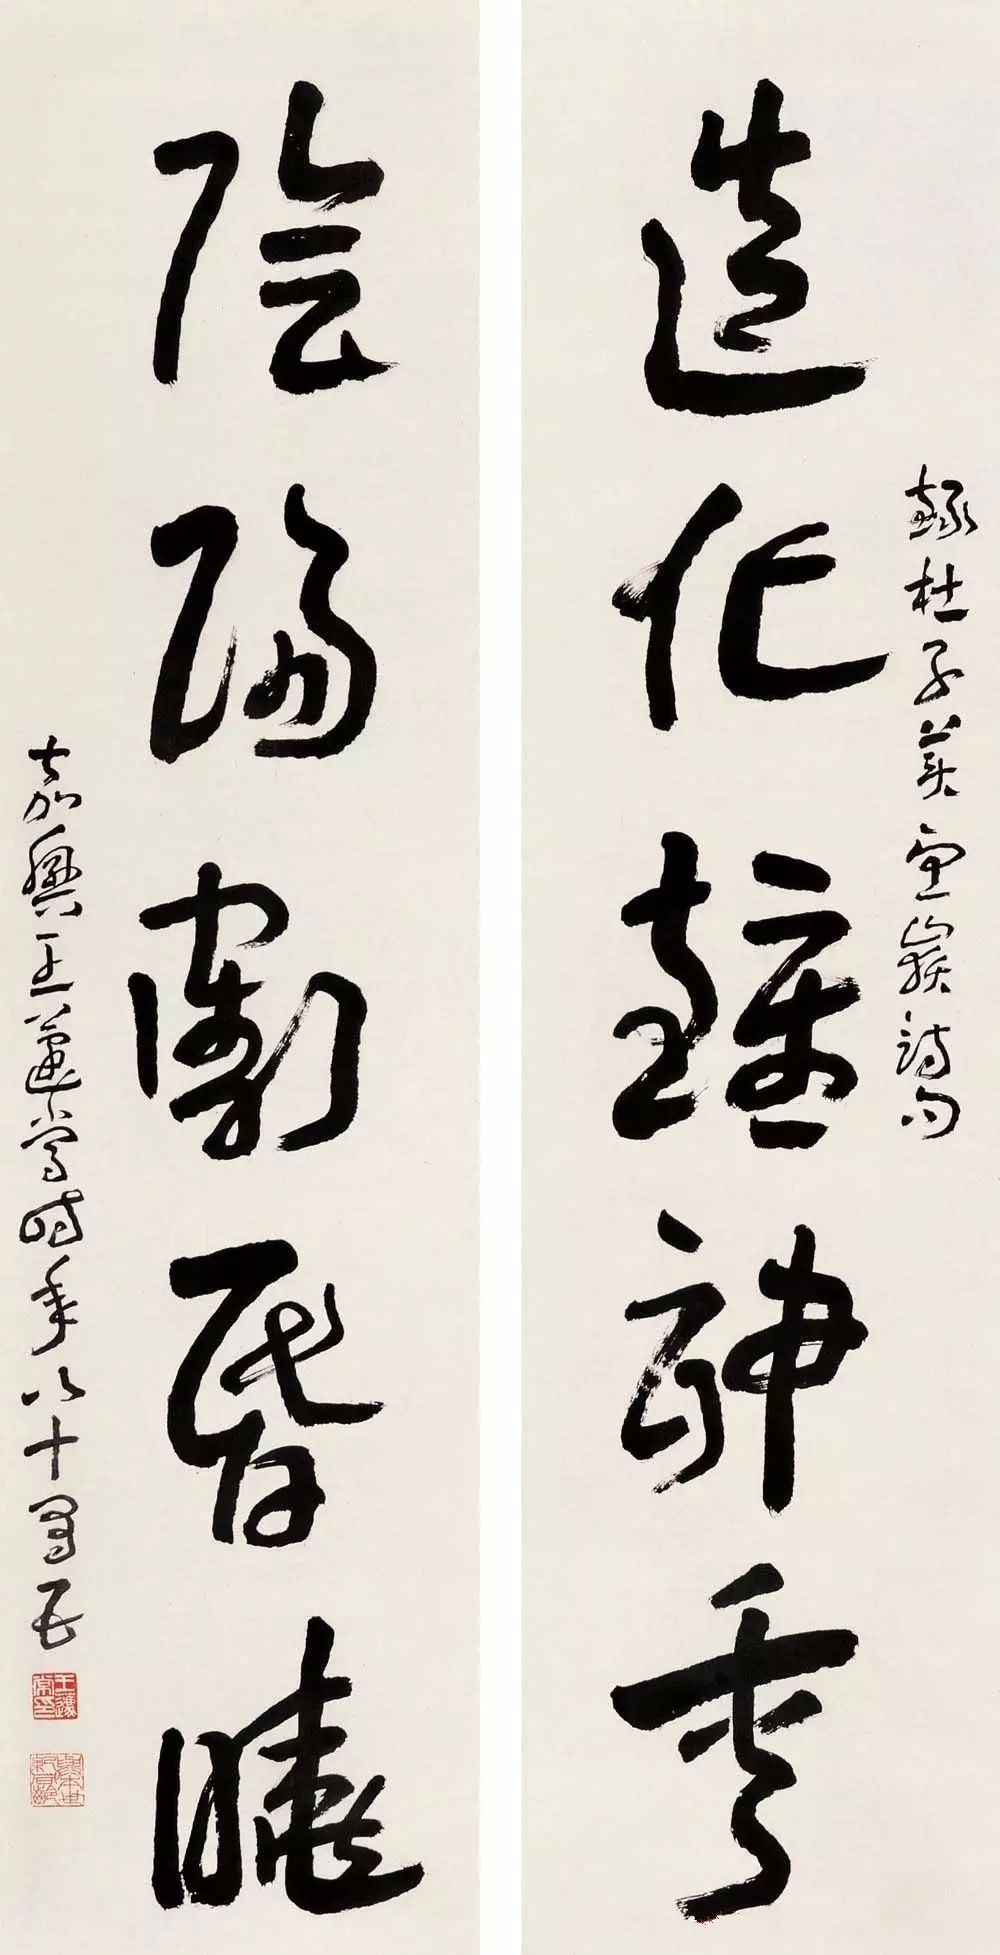 錄杜子美望嶽詩句
造化鍾神秀
陰陽割昏曉
嘉興王蘧常時年八十有五
王蘧常印